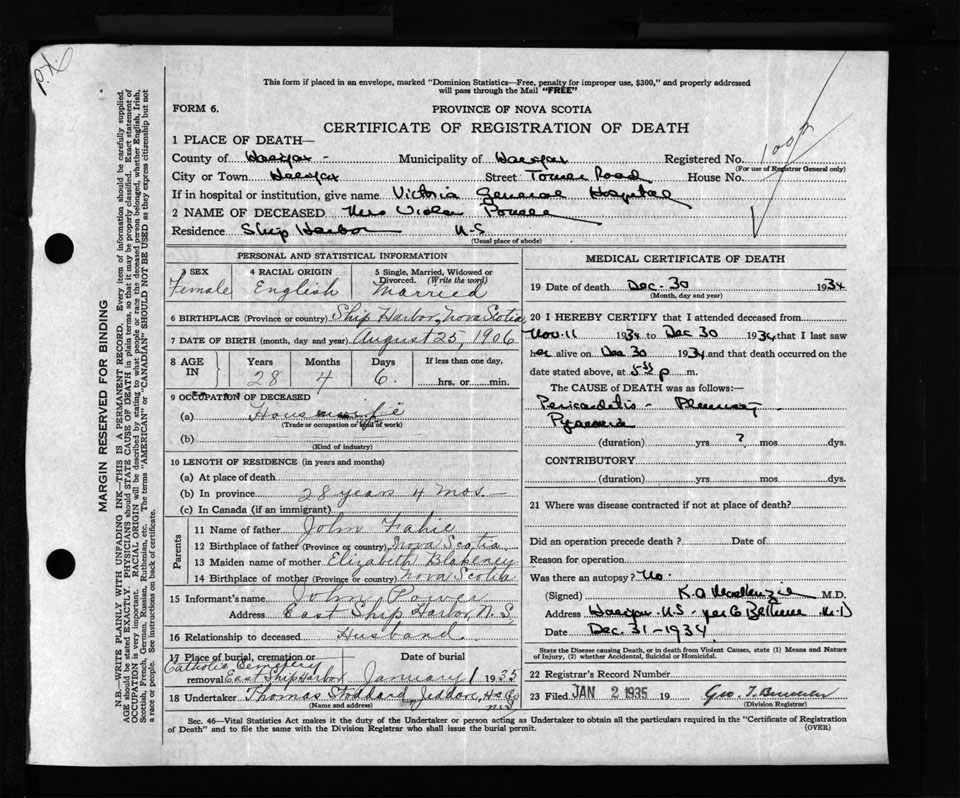 P.X.
This form if placed in an envelope, marked "Dominion Statistics—Free, penalty for improper use, $300," and properly addressed
will pass through the Mail "FREE"
FORM 6.
PROVINCE OF NOVA SCOTIA
CERTIFICATE OF REGISTRATION OF DEATH
1 PLACE OF DEATH—
County of Halifax - Municipality of Halifax Registered No. 1002
(For use of Registrar General only)
City or Town Halifax Street Tower Road House No.
If in hospital or institution, give name Victoria General Hospital
2 NAME OF DECEASED Mrs Viola Power
Residence Ship Harbor N-S
(Usual place of abode)
PERSONAL AND STATISTICAL INFORMATION
3 SEX Female
4 RACIAL ORIGIN English
5 Single, Married, Widowed or Divorced. (Write the word) Married
6 BIRTHPLACE (Province or country) Ship Harbor, Nova Scotia
7 DATE OF BIRTH (month, day and year) August 25, 1906
8 AGE IN Years 28 Months 4 Days 6. If less than one day, hrs. or min.
9 OCCUPATION OF DECEASED
(a) Housewife
(Trade or occupation or kind of work)
(b)
(Kind of industry)
10 LENGTH OF RESIDENCE (in years and months)
(a) At place of death
(b) In province 28 years 4 mos.
(c) In Canada (if an immigrant)
Parents
11 Name of father John Fahie
12 Birthplace of father (Province or country) Nova Scotia
13 Maiden name of mother Elizabeth Blakeney
14 Birthplace of mother (Province or country) Nova Scotia
15 Informant's name John Power
Address East Ship Harbor, N.S,
16 Relationship to deceased Husband.
17 Place of burial, cremation or removal Catholic Cemetery East Ship Harbor
Date of burial January 1 1935
18 Undertaker Thomas Stoddard Jeddore, Hx Co N.S
(Name and address)
MEDICAL CERTIFICATE OF DEATH
19 Date of death Dec. 30 1934
(Month, day and year)
20 I HEREBY CERTIFY that I attended deceased from
Nov. 11 1934 to Dec 30 1934 that I last saw
her alive on Dec 30 1934 and that death occurred on the
date stated above, at 5-55 p m.
The CAUSE of DEATH was as follows:—
Pericarditis - Pleurisy
Pyaemia
(duration) yrs ? mos. dys.
CONTRIBUTORY
(duration) yrs. mos. dys.
21 Where was disease contracted if not at place of death?
Did an operation precede death? Date of
Reason for operation
Was there an autopsy? No.
(Signed) K. A MacKenzie M.D.
Address Halifax - N.S - per C Bethune M.D
Date Dec. 31-1934
State the Disease causing Death, or in death from Violent Causes, state (1) Means and Nature
of Injury, (2) whether Accidental, Suicidal or Homicidal.
22 Registrar's Record Number
23 Filed JAN 2 1935 19 Geo. T.
(Division Registrar)
Sec. 46—Vital Statistics Act makes it the duty of the Undertaker or person acting as Undertaker to obtain all the particulars required in the "Certificate of Registration
of Death" and to file the same with the Division Registrar who shall issue the burial permit.
(OVER)
MARGIN RESERVED FOR BINDING
N.B.—WRITE PLAINLY WITH UNFADING INK—THIS IS A PERMANENT RECORD. Every item of information should be carefully supplied.
AGE should be stated EXACTLY. PHYSICIANS should STATE CAUSE OF DEATH in plain terms, so that it may be properly classified. Exact statement of
OCCUPATION is very important. RACIAL ORIGIN will be described by stating to what people or race the deceased person belonged, whether English, Irish,
Scottish, French, German, Russian, Ruthenian, etc. The terms "AMERICAN" or "CANADIAN" SHOULD NOT BE USED as they express citizenship but not
a race or people. See instructions on back of certificate.